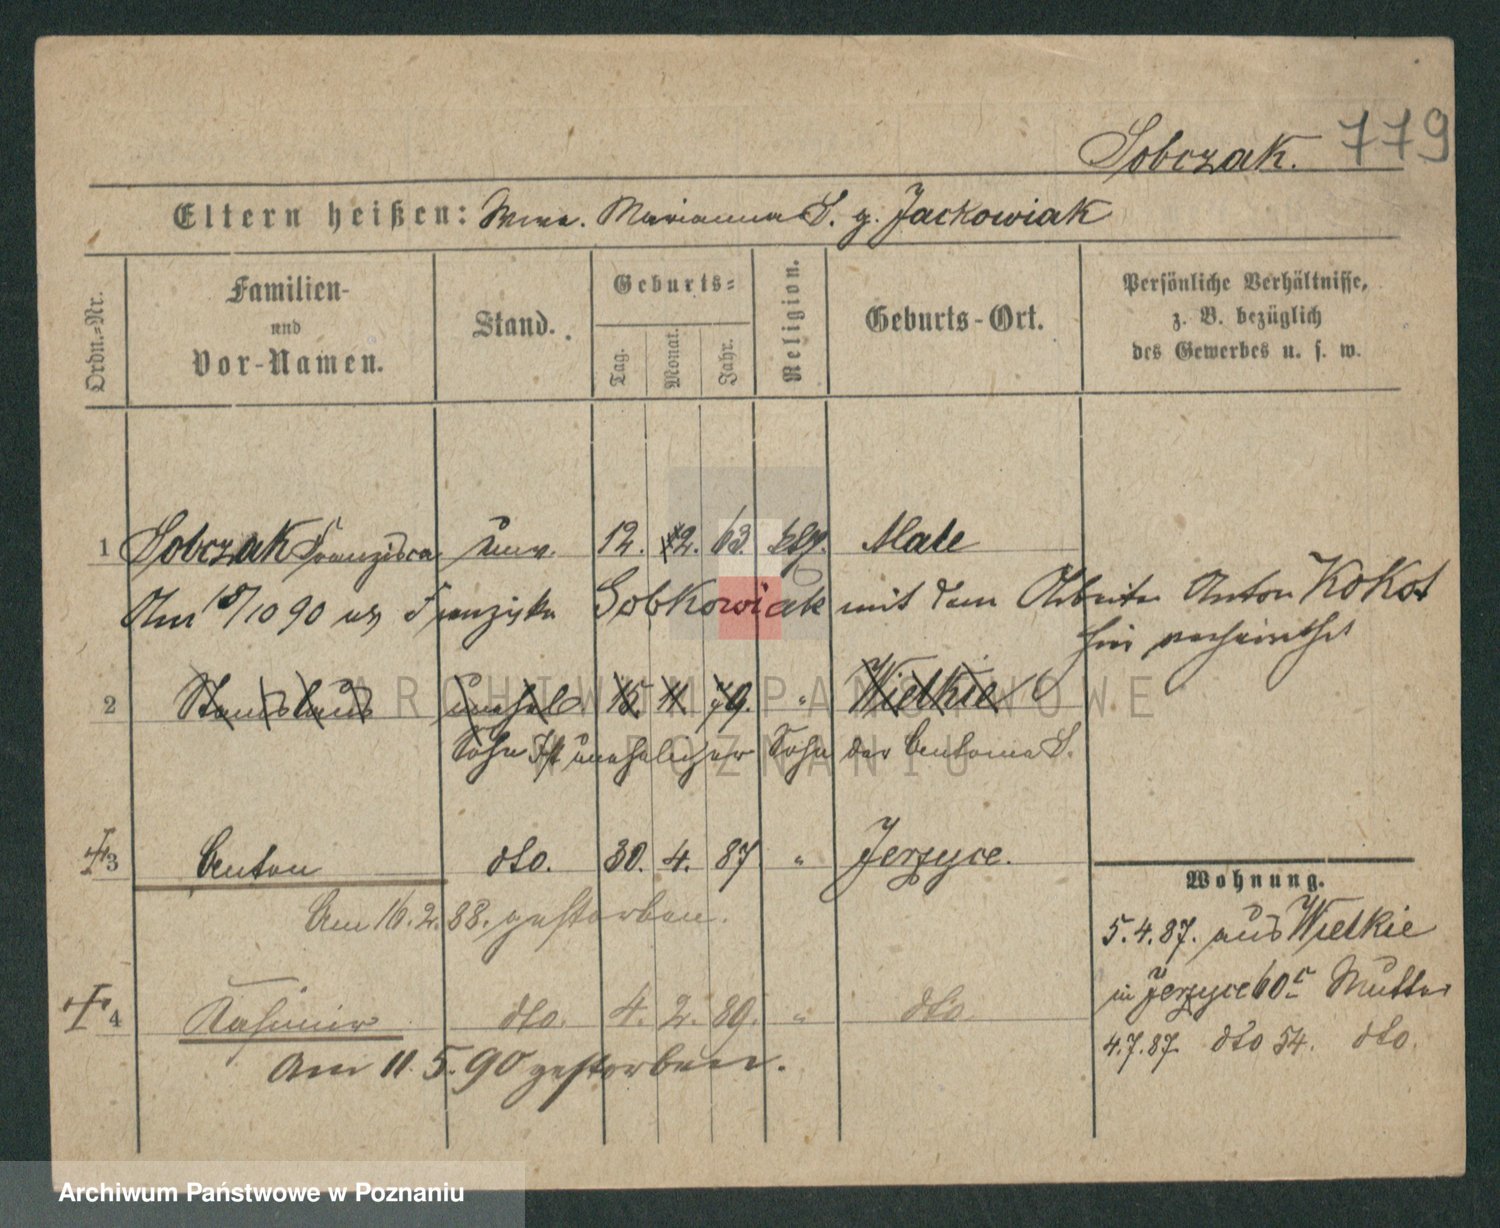 Sobczak. 779
Eltern heißen: Wwe. Marianna S. g. Jackowiak
Ordn.-Nr.
Familien-
und
Vor-Namen.
Stand.
Geburts-
Tag.
Monat.
Jahr.
Religion.
Geburts-Ort.
Persönliche Verhältnisse,
z. B. bezüglich
des Gewerbes u. s. w.
1 Sobczak Franzisca unv. 12. 2. 63. ktl. Male
Am 18/10 90 als Franziska Sobkowiak mit dem Arbeiter Anton Kokot
hier verheirathet
2 Stanislaus unehel 15. 11. 79. " Wielkie
Sohn Ist unehelicher Sohn der Antonie S.
3 Anton dto. 30. 4. 87 " Jerzyce.
Am 16. 2. 88. gestorben.
4 Kasimir dto. 4. 2. 89. " dto
Am 11. 5. 90 gestorben.
Wohnung.
5. 4. 87. aus Wielkie
in Jerzyce 60 Mutter
4. 7. 87 dto 54. dto.
ARCHIWUM PAŃSTWOWE
W POZNANIU
Archiwum Państwowe w Poznaniu